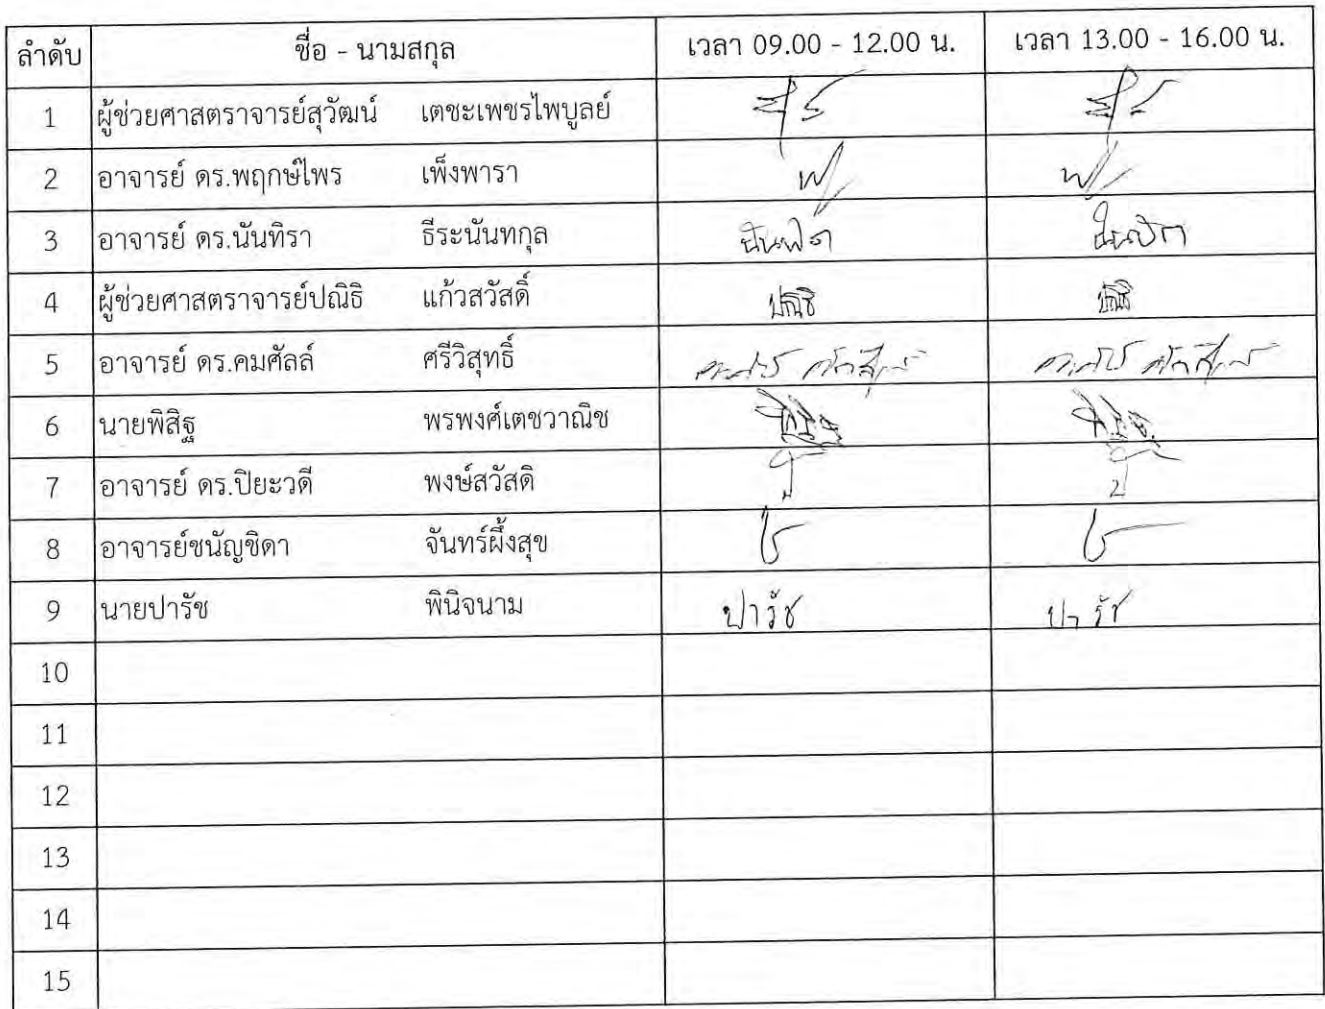 ลำดับ ชื่อ - นามสกุล เวลา 09.00 - 12.00 น. เวลา 13.00 - 16.00 น.
1 ผู้ช่วยศาสตราจารย์สุวัฒน์ เตชะเพชรไพบูลย์
2 อาจารย์ ดร.พฤกษ์ไพร เพ็งพารา
3 อาจารย์ ดร.นันทิรา ธีระนันทกุล
4 ผู้ช่วยศาสตราจารย์ปณิธิ แก้วสวัสดิ์ ปณิธิ ปณิธิ
5 อาจารย์ ดร.คมศัลล์ ศรีวิสุทธิ์
6 นายพิสิฐ พรพงศ์เตชวาณิช
7 อาจารย์ ดร.ปิยะวดี พงษ์สวัสดิ
8 อาจารย์ชนัญชิดา จันทร์ผึ้งสุข
9 นายปารัช พินิจนาม ปารัช ปารัช
10
11
12
13
14
15